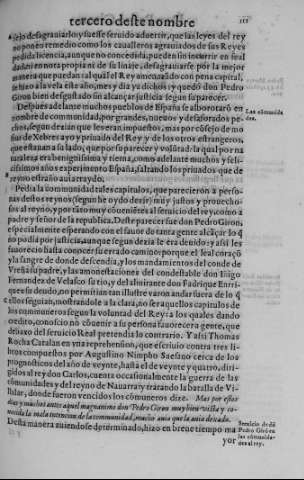 tercero deste nombre
111
sejo desagrauiarlo y fuesse seruido aduertir, que las leyes del rey
no ponē remedio como los caualleros agrauiados de sus Reyes
pedida licencia, aunque no concedida, pueden sin incurrir en
daño ni nota propia ni de su linaje, desagrauiarse por la mejor
manera que puedan
se hizo a la vela este año, mes y dia ya dichos
Giron bien desgustado sin alcançar justicia segun su parecer.
Despues adelante muchos pueblos de España se alborotarō en
nombre de comunidad, por grandes, nueuos y desaforados pe-
chos, segun dezian que le eran impuestos, mas por cōsejo de mo
sur de Xebres ayo y priuado del Rey y de los otros estrangeros,
que estauan a su lado, que por su parecer y volūtad: la qual por na
turaleza era benignissima y tierna, como adelante muchos y feli-
cissimos años experimento España, faltando los priuados que de
reyno estraño auia traydo.
Las comunida
des.
Pedia la comunidad tales capitulos, que parecieron a perso-
nas destos reynos (segun he oydo dezir) muy justos y prouecho-
sos al reyno, y por tāto muy cōuenibles al seruicio del rey, como a
padre y señor de la republica. Deste parecer fue don Pedro Giron,
especialmente esperando con el fauor de tanta gente alcāçar lo q̄
no podia por justicia, aunque segun dezia le era deuido: y assi les
fauorecio hasta conocer su errado camino: porque el leal coraçō
y la sangre de donde descendia, y los mandamientos del conde de
Vreña su padre, y las amonestaciones del condestable don Iñigo
Fernandez de Velasco su tio, y del almirante don Fadrique Enrri-
ques su deudo, no permitian
ellos seguian, mostrandole a la clara, no ser aquellos capitulos de
los comuneros segun la voluntad del Rey: a los quales dando
credito, conoscio no cōuenir a su persona fauorecer a gente, que
debaxo del seruicio Real pretendia lo contrario. Y assi Thomas
Rocha Catalan en vna reprehension, que escriuio contra tres li-
bros compuestos por Augustino Nimpho Suesano cerca de los
prognosticos del año de veynte, hasta el de veynte y quatro, diri-
gidos al rey don Carlos, cuenta occasionalmente la guerra de las
cōmunidades y del reyno de Nauarra: y tratando la batalla de Vi-
llalar, donde fueron vencidos los comuneros dize. Mas por estos
dias y muchos antes aquel magnanimo don Pedro Giron muy bien vista y co-
nocida la mala intencion de la comunidad, mucho auia que la auia dexado.
Desta manera auiendose determinado, hizo en breue tiempo ma
yor
Seruicio de dō
Pedro Girō en
las cōmunida-
des al rey.